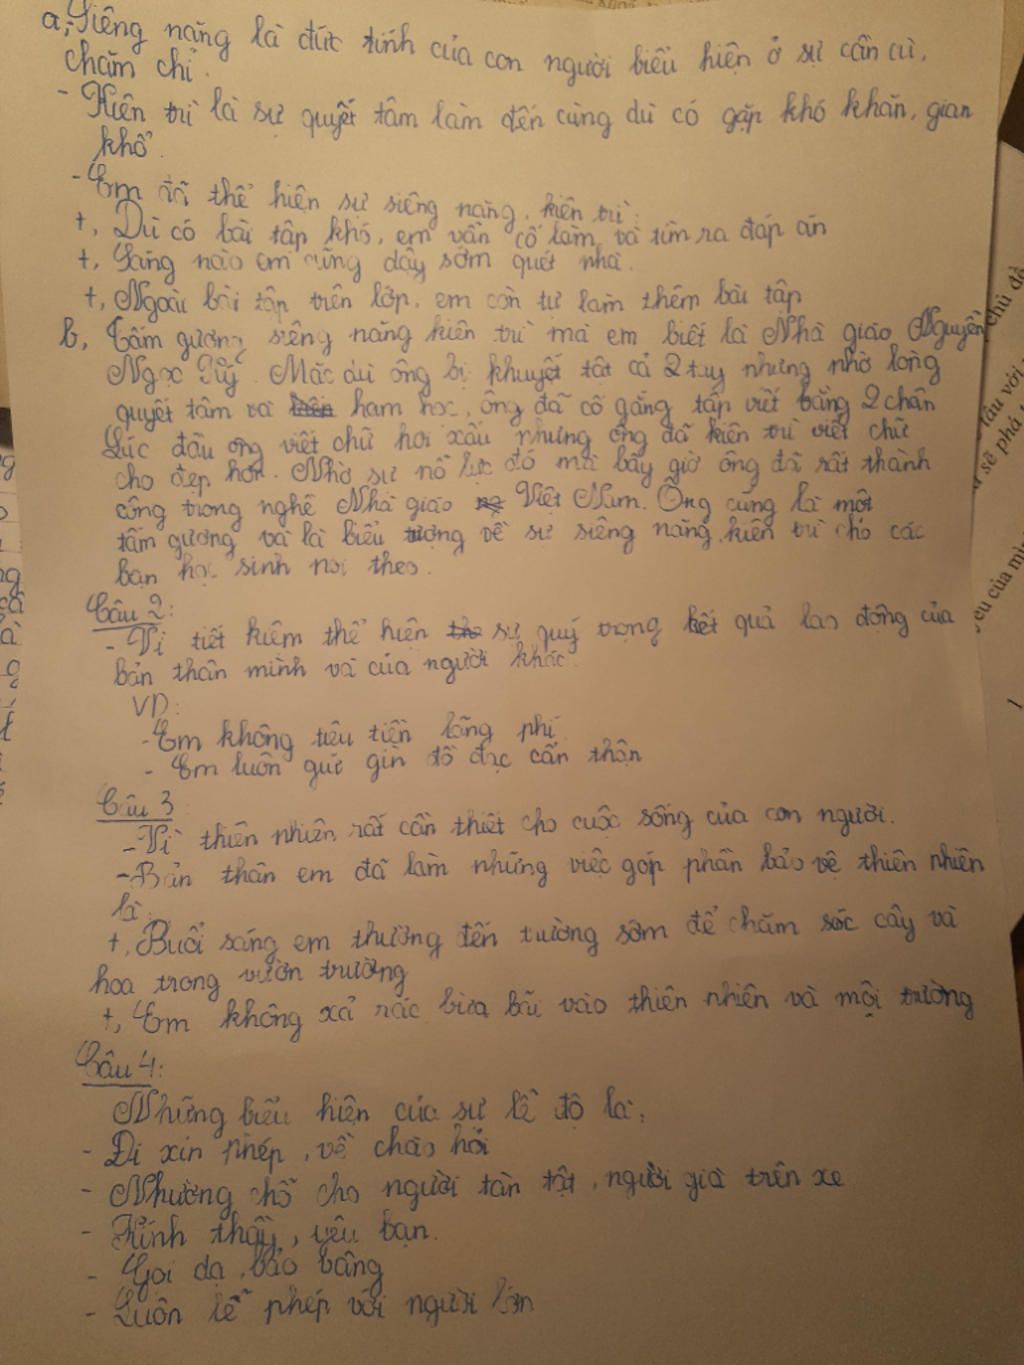 a, Siêng năng là đức tính của con người biểu hiện ở sự cần cù,
chăm chỉ.
- Kiên trì là sự quyết tâm làm đến cùng dù có gặp khó khăn, gian
khổ.
- Em đã thể hiện sự siêng năng, kiên trì:
+, Dù có bài tập khó, em vẫn cố làm và tìm ra đáp án
+, Sáng nào em cũng dậy sớm quét nhà.
+, Ngoài bài tập trên lớp, em còn tự làm thêm bài tập
b, Tấm gương siêng năng kiên trì mà em biết là Nhà giáo Nguyễn
Ngọc Ký. Mặc dù ông bị khuyết tật cả 2 tay nhưng nhờ lòng
quyết tâm và ham học, ông đã cố gắng tập viết bằng 2 chân
Lúc đầu ông viết chữ hơi xấu nhưng ông đã kiên trì viết chữ
cho đẹp hơn. Nhờ sự nỗ lực đó mà bây giờ ông đã rất thành
công trong nghề Nhà giáo Việt Nam. Ông cũng là một
tấm gương và là biểu tượng về sự siêng năng, kiên trì cho các
bạn học sinh noi theo.
Câu 2:
- Vì tiết kiệm thể hiện sự quý trọng kết quả lao động của
bản thân mình và của người khác.
VD:
- Em không tiêu tiền lãng phí.
- Em luôn giữ gìn đồ đạc cẩn thận
Câu 3
- Vì thiên nhiên rất cần thiết cho cuộc sống của con người.
- Bản thân em đã làm những việc góp phần bảo vệ thiên nhiên
là:
+, Buổi sáng em thường đến trường sớm để chăm sóc cây và
hoa trong vườn trường
+, Em không xả rác bừa bãi vào thiên nhiên và môi trường
Câu 4:
Những biểu hiện của sự lễ độ là:
- Đi xin phép, về chào hỏi
- Nhường chỗ cho người tàn tật, người già trên xe
- Kính thầy, yêu bạn.
- Gọi dạ, bảo vâng
- Luôn lễ phép với người lớn
chủ đề
lâu với
sẽ phá
yêu của mìn